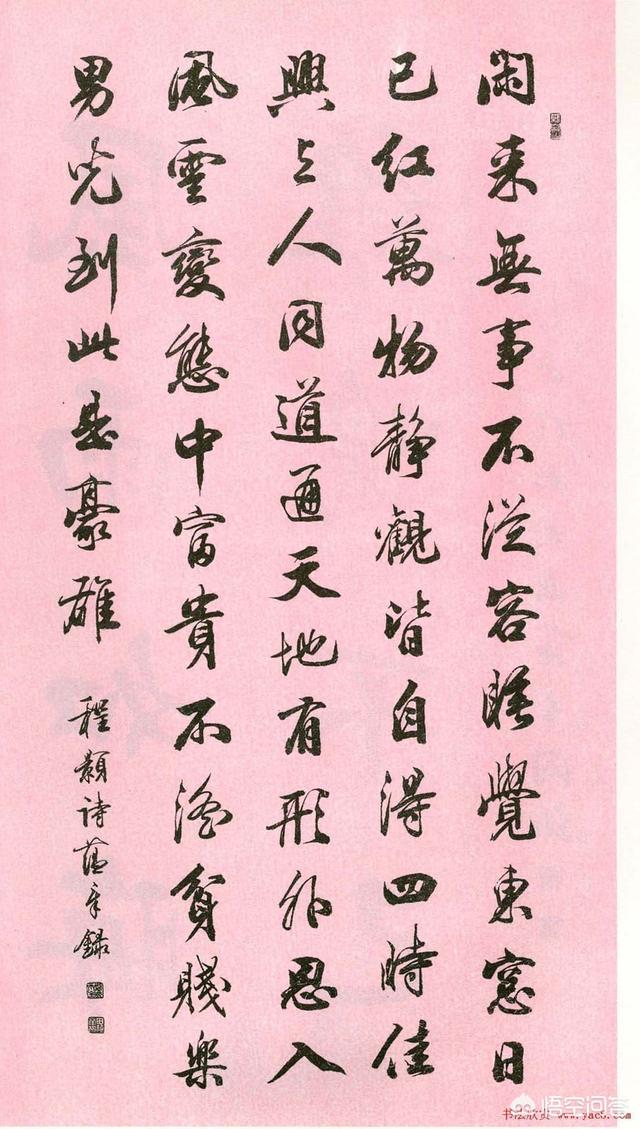 閑来無事不從容睡覺東窓日
已红萬物静觀皆自得四時佳
興与人同道通天地有形外思入
風雲變態中富貴不淫貧賤樂
男児到此是豪雄
程顥诗 錄
悟空问答
书法欣赏 www.yac8.com